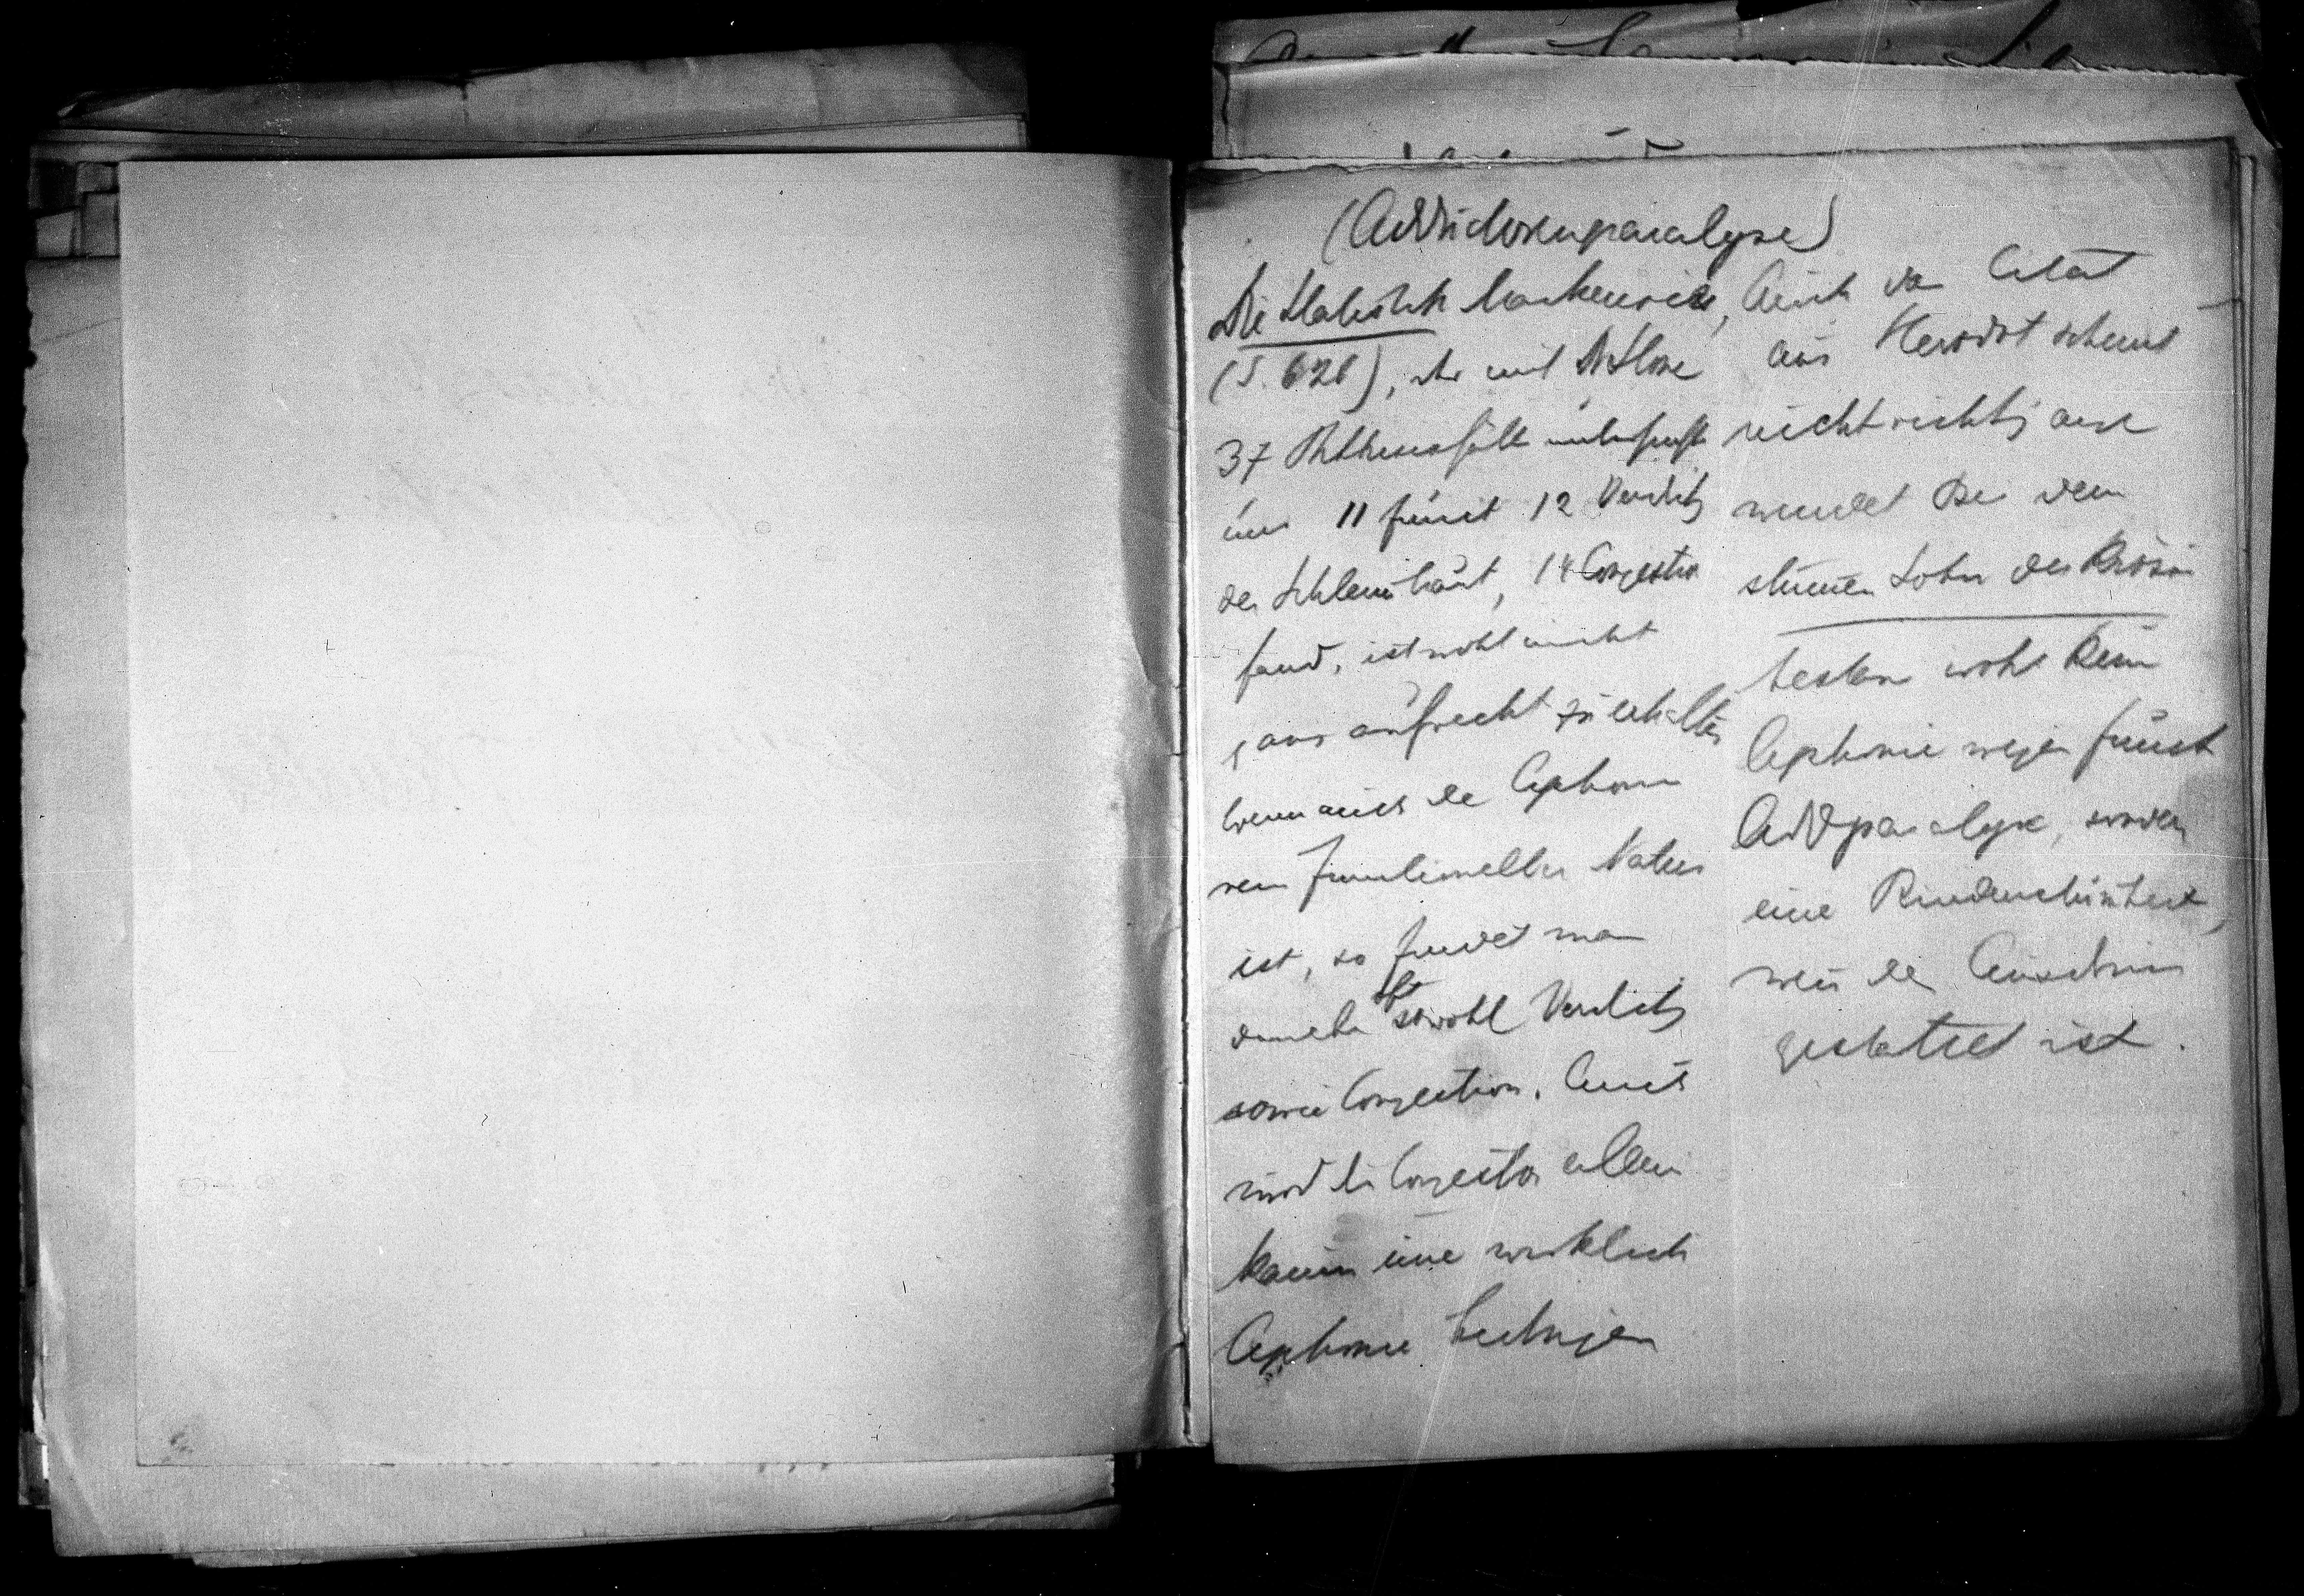 (Adductorenparalyse)
Die Statistik Mackenzies,
(S. 626), der mit
37 Phthisisfälle untersuchte
und 11 funct 12 Verdickg
der Schleimhaut, 14 Congestion
fand, ist wohl nicht
ganz aufrecht zu erhalten
Wenn auch die Aphonie
rein functioneller Natur
ist, so findet man
daneben oft sowohl Verdickg
sowie Congestion. Auch
wird die Congestion allein
kaum eine wirkliche
Aphonie bedingen
Auch das Citat
aus Herodot scheint
nicht richtig ange
wendet Bei dem
stummen Sohn des Krösus
bestand wohl keine
Aphonie wegen funct
Addparalyse, sondern
eine
wenn der Ausdruck
gestattet ist.